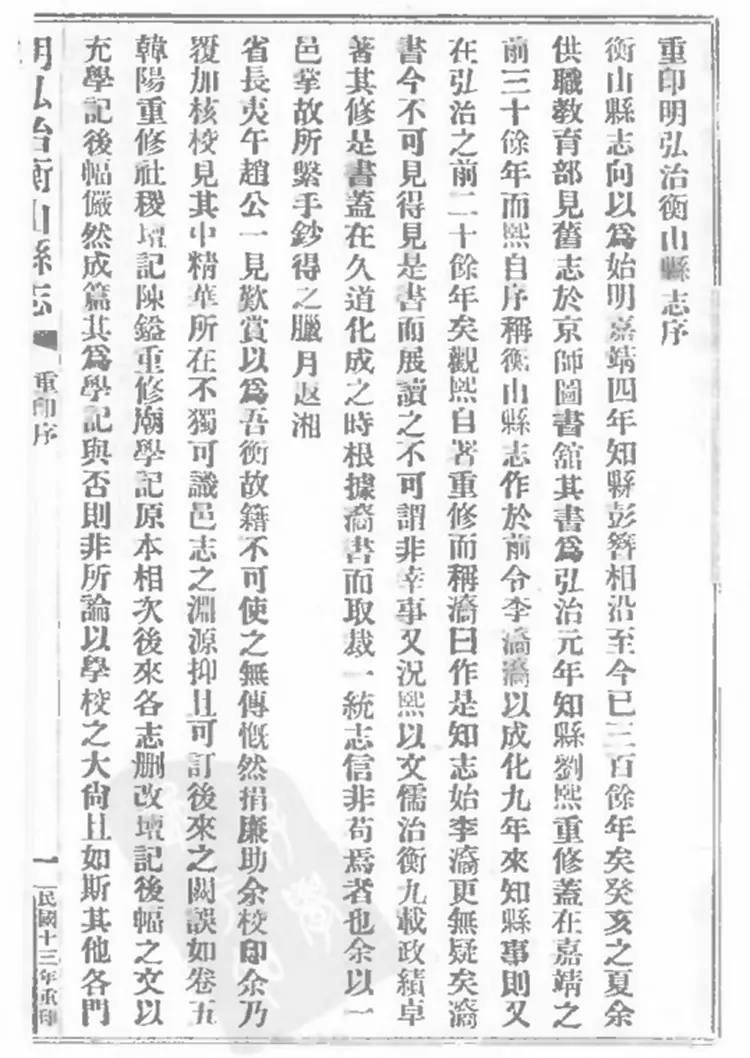 重印明弘治衡山縣志序
衡山縣志向以爲始明嘉靖四年知縣彭簪相沿至今已三百餘年矣癸亥之夏余
供職敎育部見舊志於京師圖書舘其書爲弘治元年知縣劉熙重修蓋在嘉靖之
前三十餘年而熙自序稱衡山縣志作於前令李矞矞以成化九年來知縣事則又
在弘治之前二十餘年矣觀熙自署重修而稱矞曰作是知志始李矞更無疑矣矞
書今不可見得見是書而展讀之不可謂非幸事又況熙以文儒治衡九載政績卓
著其修是書蓋在久道化成之時根據矞書而取裁一統志信非苟焉者也余以一
邑掌故所繫手鈔得之臘月返湘
省長夷午趙公一見歎賞以爲吾衡故籍不可使之無傳慨然捐廉助余校印余乃
覆加核校見其中精華所在不獨可識邑志之淵源抑且可訂後來之闕誤如卷五
韓陽重修社稷壇記陳鎰重修廟學記原本相次後來各志删改壇記後幅之文以
充學記後幅儼然成篇其爲學記與否則非所論以學校之大尙且如斯其他各門
明弘治衡山縣志
重印序
一
民國十三年重印